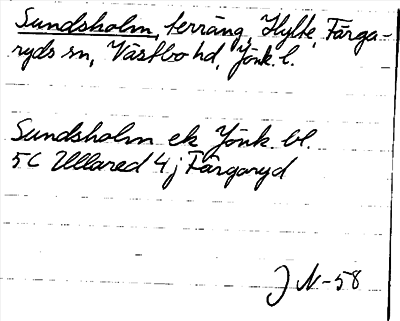 Sundsholm, terräng, Hylte, Färga-
ryds sn, Västbo hd, Jönk. l.
Sundsholm ek Jönk. bl.
5C Ullared 4 j Färgaryd
J N-58